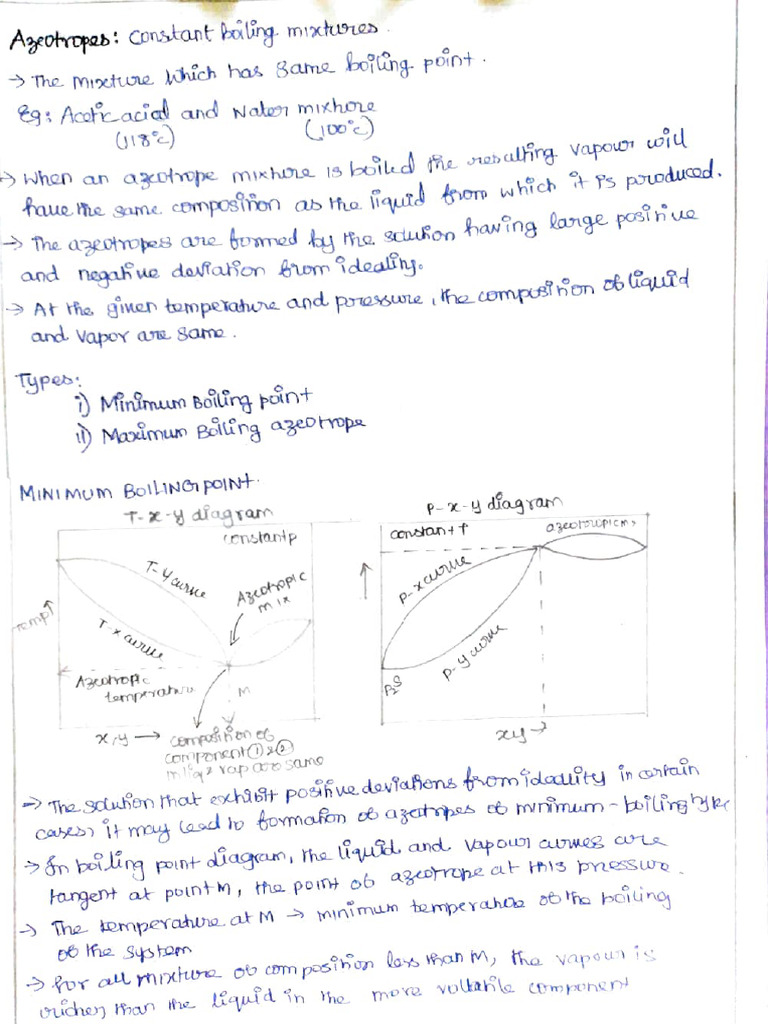 Azeotropes: constant boiling mixtures.
→ The mixture which has same boiling point.
Eg: Acetic acid and water mixture
(118°c) (100°c)
→ When an azeotrope mixture is boiled the resulting vapour will
have the same composition as the liquid from which it is produced.
→ The azeotropes are formed by the solution having large positive
and negative deviation from ideality.
→ At the given temperature and pressure, the composition of liquid
and vapor are same.
Types:
i) Minimum Boiling point
ii) Maximum Boiling azeotrope
MINIMUM BOILING POINT.
T-x-y diagram
constant p
T-y curve
Azeotropic
mix
Temp↑
T-x curve
Azeotropic
temperature
M
x,y →
composition of
component ① & ②
in liq & vap are same
P-x-y diagram
constant T
azeotropic mix
↑
P-x curve
P-y curve
P₂ˢ
xy →
→ The solution that exhibit positive deviations from ideality in certain
cases, it may lead to formation of azeotropes of minimum-boiling type
→ In boiling point diagram, the liquid and vapour curves are
tangent at point M, the point of azeotrope at this pressure.
→ The temperature at M → minimum temperature of the boiling
of the system
→ for all mixture of composition less than M, the vapour is
richer than the liquid in the more volatile component